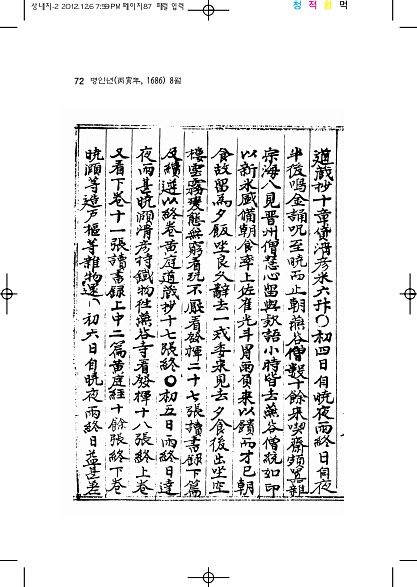 상내지-2 2012.12.6 7:59 PM 페이지87 페털 입력
청 적 황 먹
72 병인년(丙寅年, 1686) 8월
道藏抄十章贊海彦米六升○初四日自曉夜雨終日自夜
半後鳴金誦呪至曉而止朝燕谷僧數十餘來喫齋頻畧雜
宗海八見晋州僧慧心留與款語小時皆去燕谷僧統如印
以新水風備朝食率上佐崔光斗冒雨須來以饋而才已朝
食故留爲夕飯坐良久辭去一式委來見去夕食後出坐
樓雲霧變態無窮看玩不厭看發揮二十七張讀書錄下篇
及續選以終卷黃庭道藏抄十七張終○初五日雨終日達
夜雨甚曉頤海彦持鐵物往燕谷寺看發揮十八張終上卷
又看下卷十一張讀書錄上中二篇黃庭經十餘張終下卷
曉頤等造戶樞等雜物運 初六日自曉夜雨終日益甚